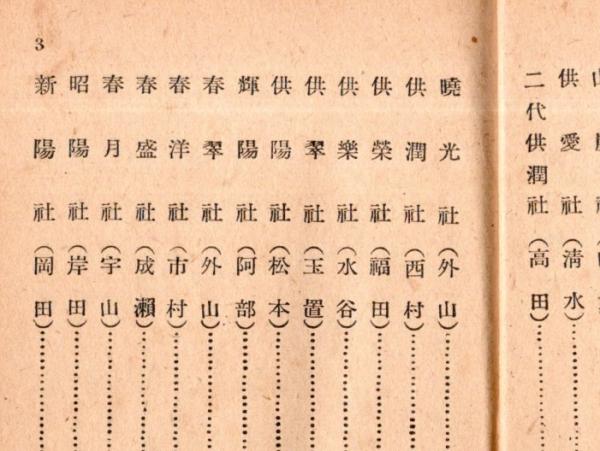 供愛社（淸水）
二代供潤社（高田）
曉光社（外山）
供潤社（西村）
供榮社（福田）
供樂社（水谷）
供翠社（玉置）
供陽社（松本）
輝陽社（阿部）
春翠社（外山）
春洋社（市村）
春盛社（成瀨）
春月社（宇山）
昭陽社（岸田）
新陽社（岡田）
3